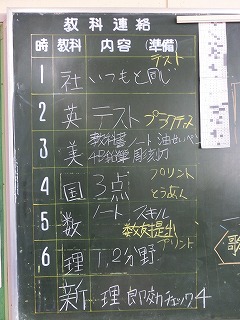 教科連絡
時 教科 内容 (準備)
テスト
1 社 いつもと同じ
2 英 テスト プラクティス
3 美 教科書 ノート 油せいペン
4B鉛筆 彫刻刀
4 国 3点 プリント
とうあん
5 数 ノート スキル
教材提出
6 理 1,2分野 プリント
新… 理 即効チェック4
歌